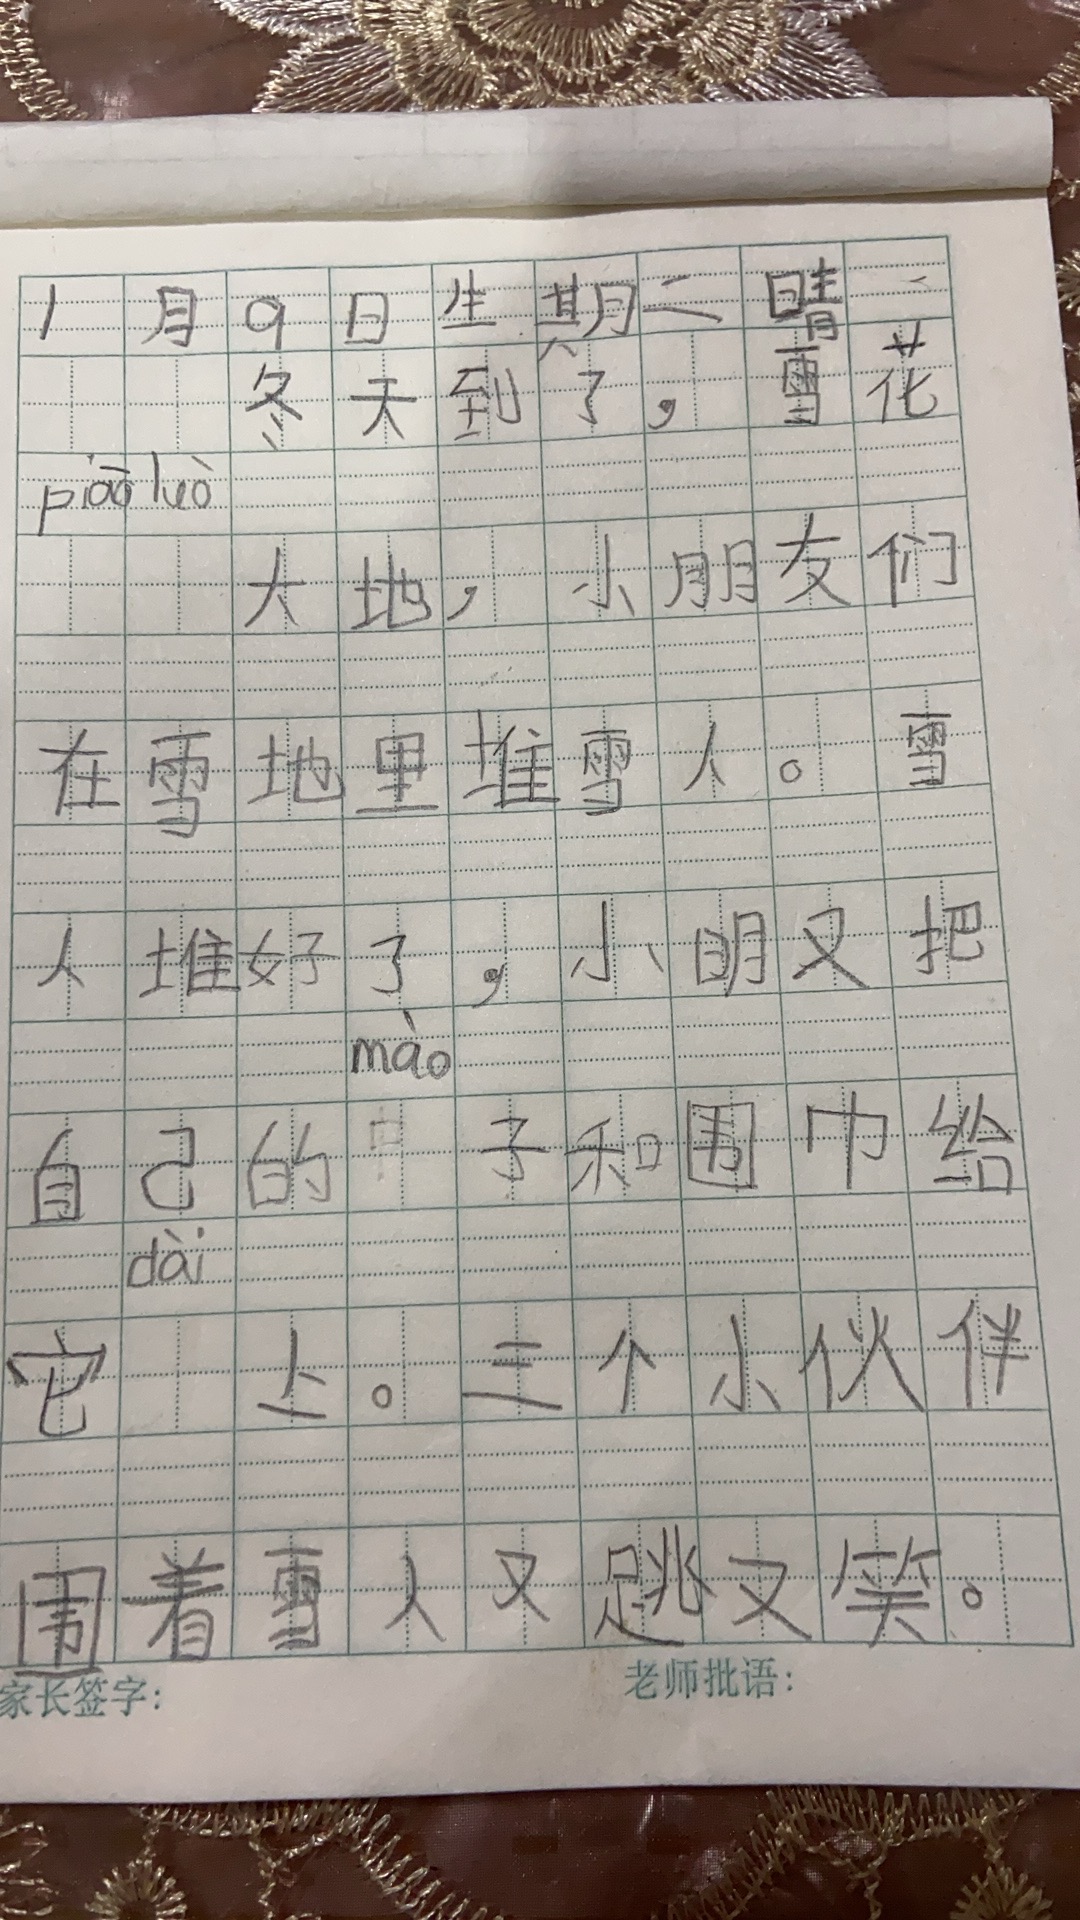 1月9日生期二晴
冬天到了，雪花
piāo luò
大地，小朋友们
在雪地里堆雪人。雪
人堆好了，小明又把
mào
自己的 子和围巾给
dài
它 上。三个小伙伴
围着雪人又跳又笑。
家长签字: 老师批语: